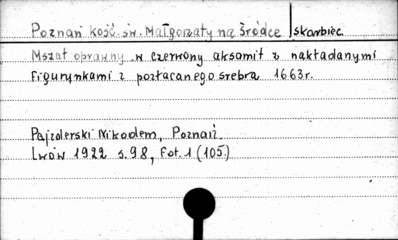 Poznań kość. św. Małgorzaty na Śródce skarbiec
Mszał oprawny w czerwony aksamit z nakładanymi
figurynkami z pozłacanego srebra 1663r.
Pajzderski Nikodem, Poznań.
Lwów 1922 s.98, fot.1 (105.)